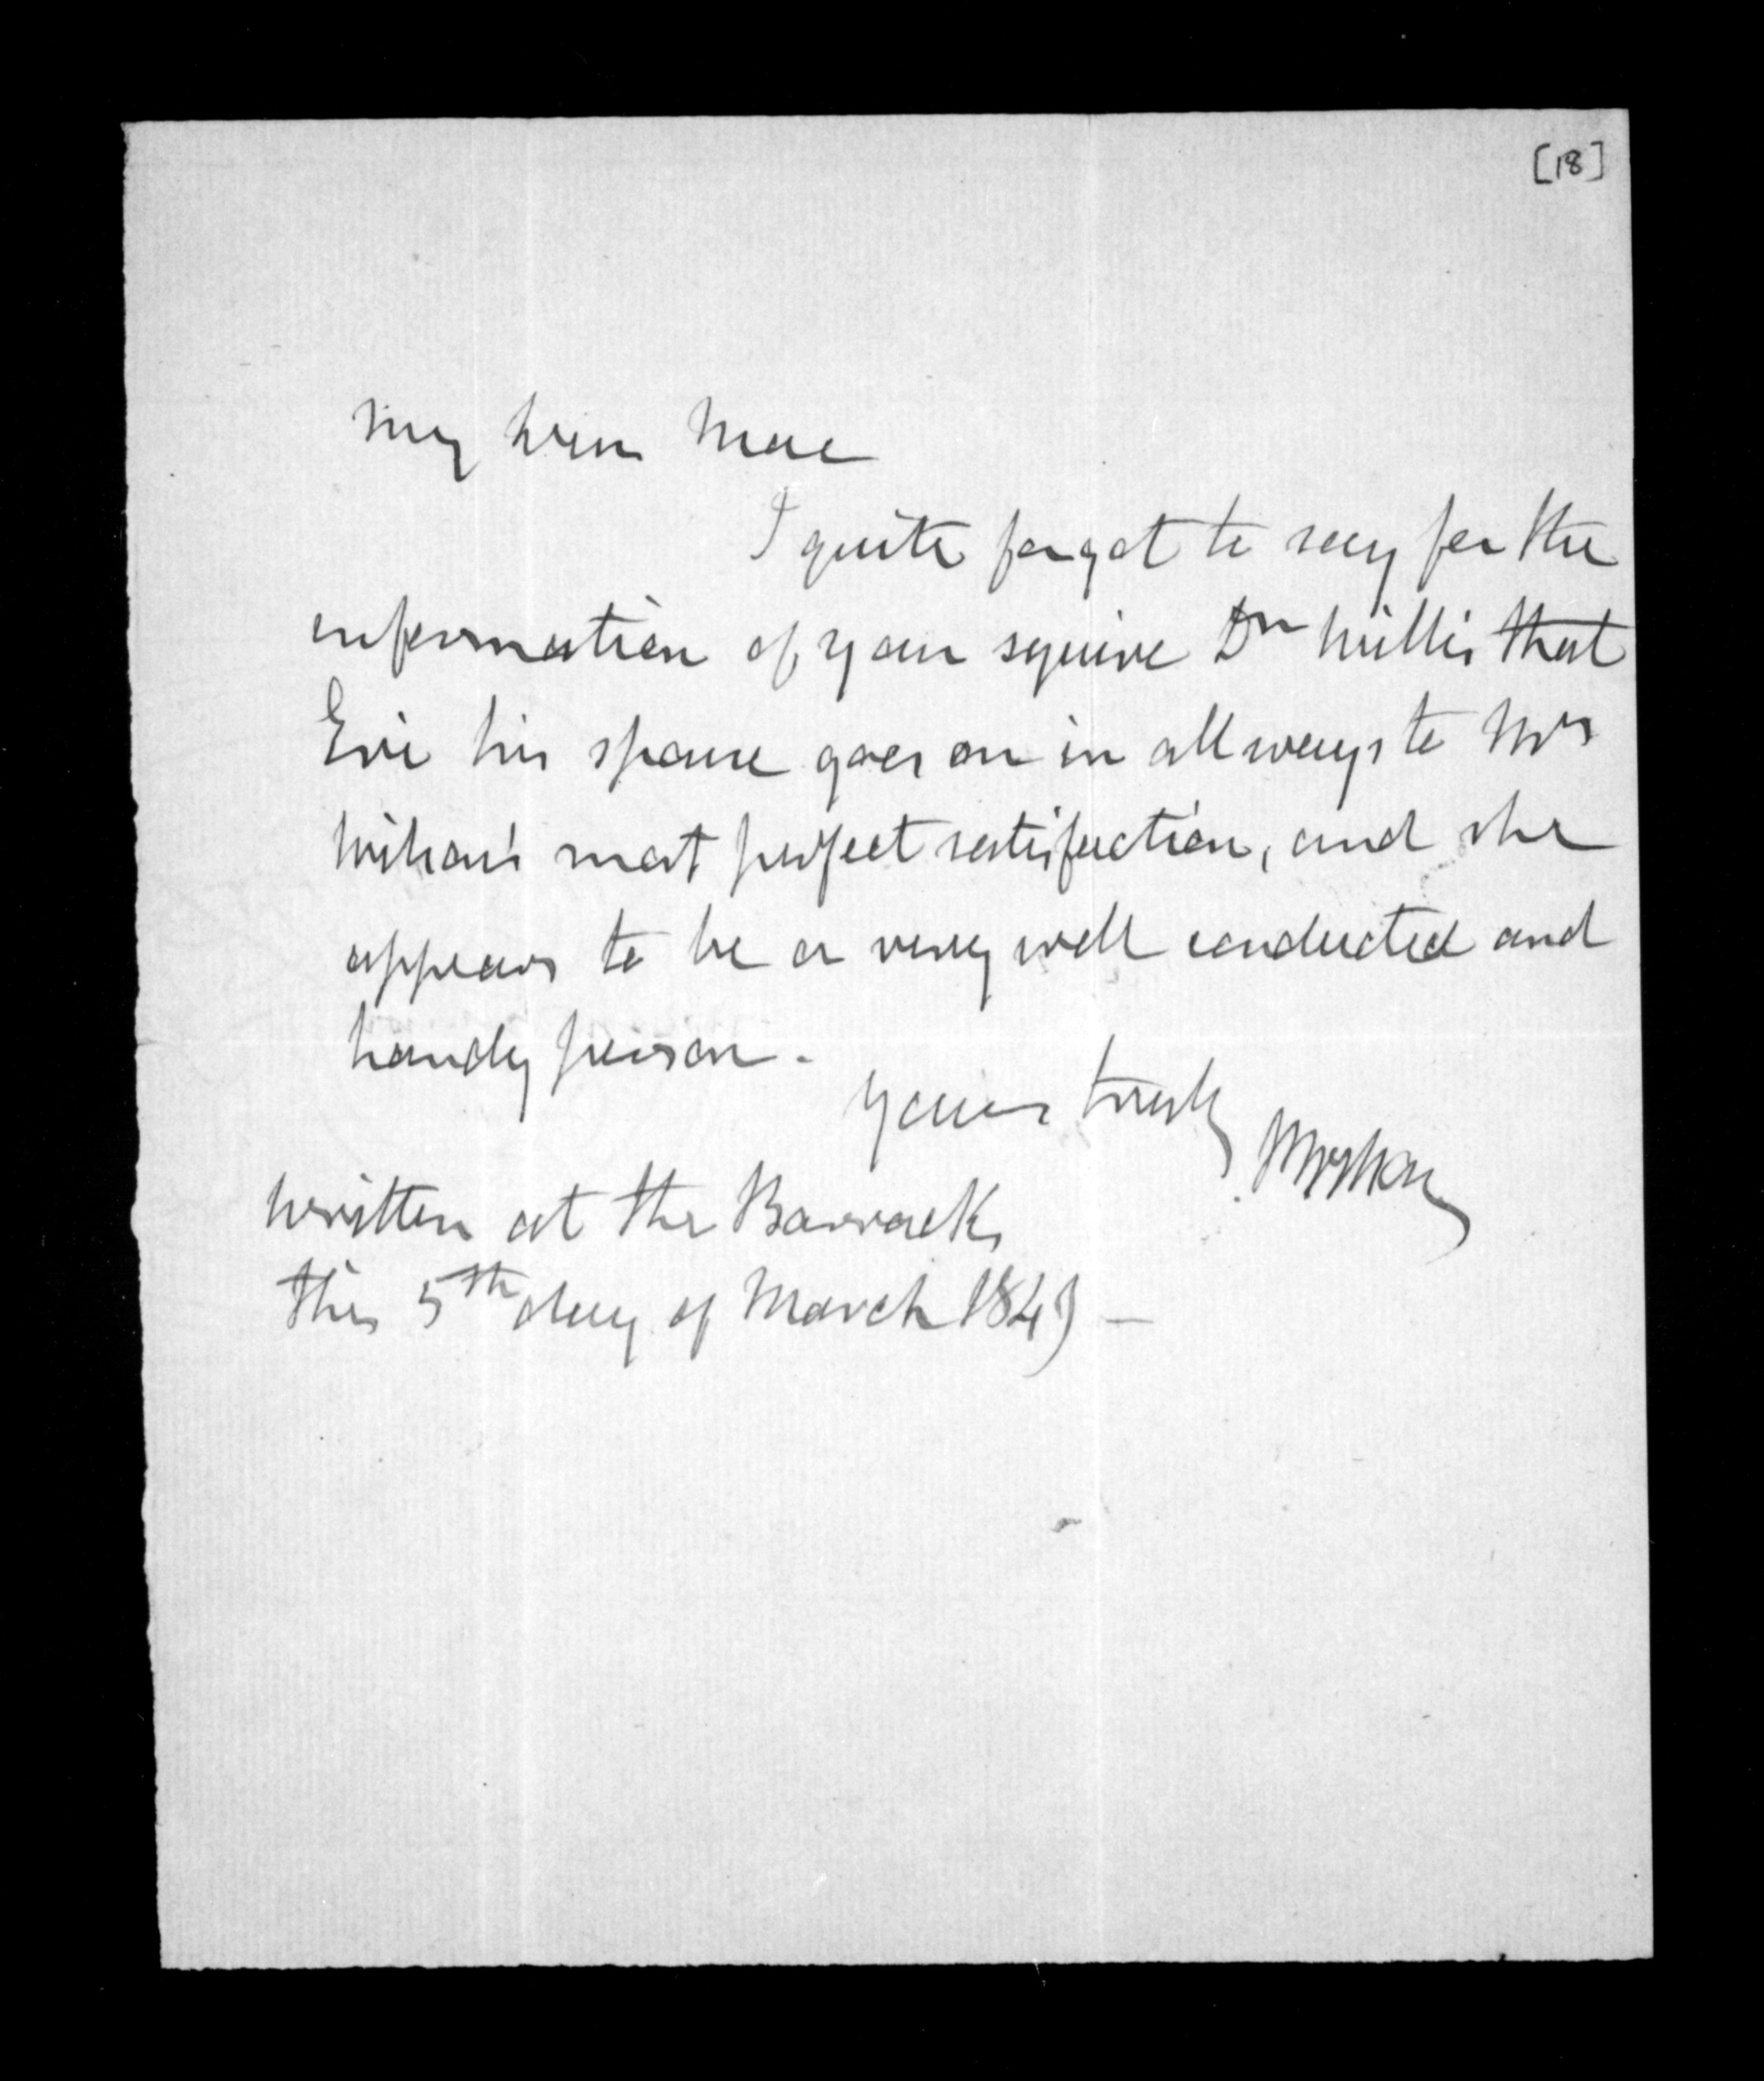 [18]
My dear Mac
I quite forgot to say for the
information of your squire Dr Willis that
Evie his spouse goes on in all ways to Mrs
Wilson's most perfect satisfaction, and she
appears to be a very well conducted and
handy person.
Yours truly
written at the Barracks
this 5th day of March 1849 —